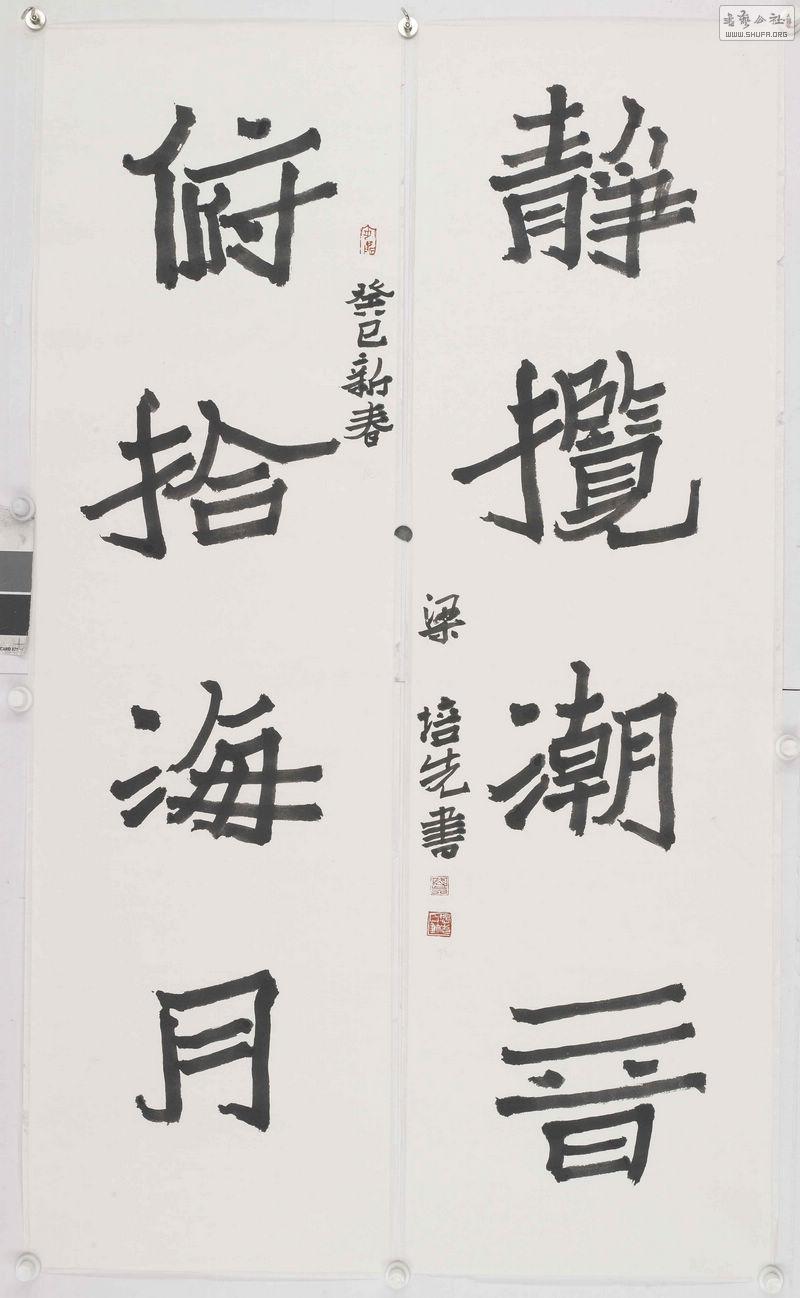 静攬潮音
俯拾海月
癸巳新春
梁培先書
書法公社
WWW.SHUFA.ORG